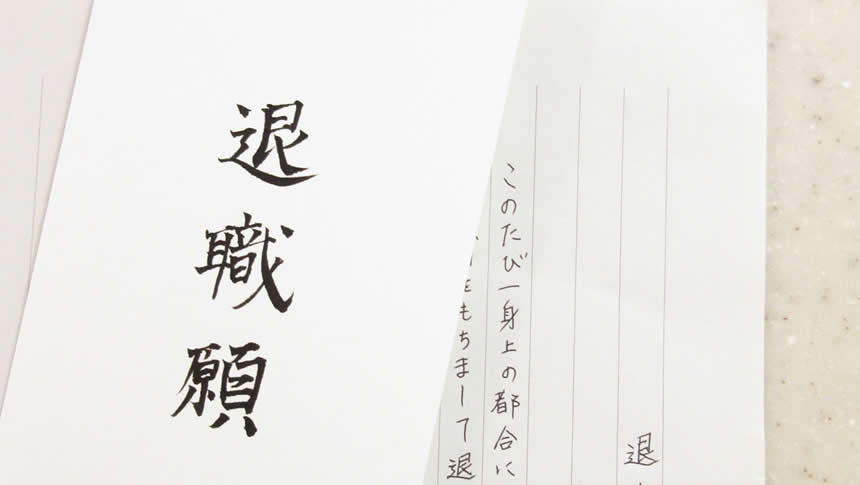 退職願
退
このたび一身上の都合に
をもちまして退